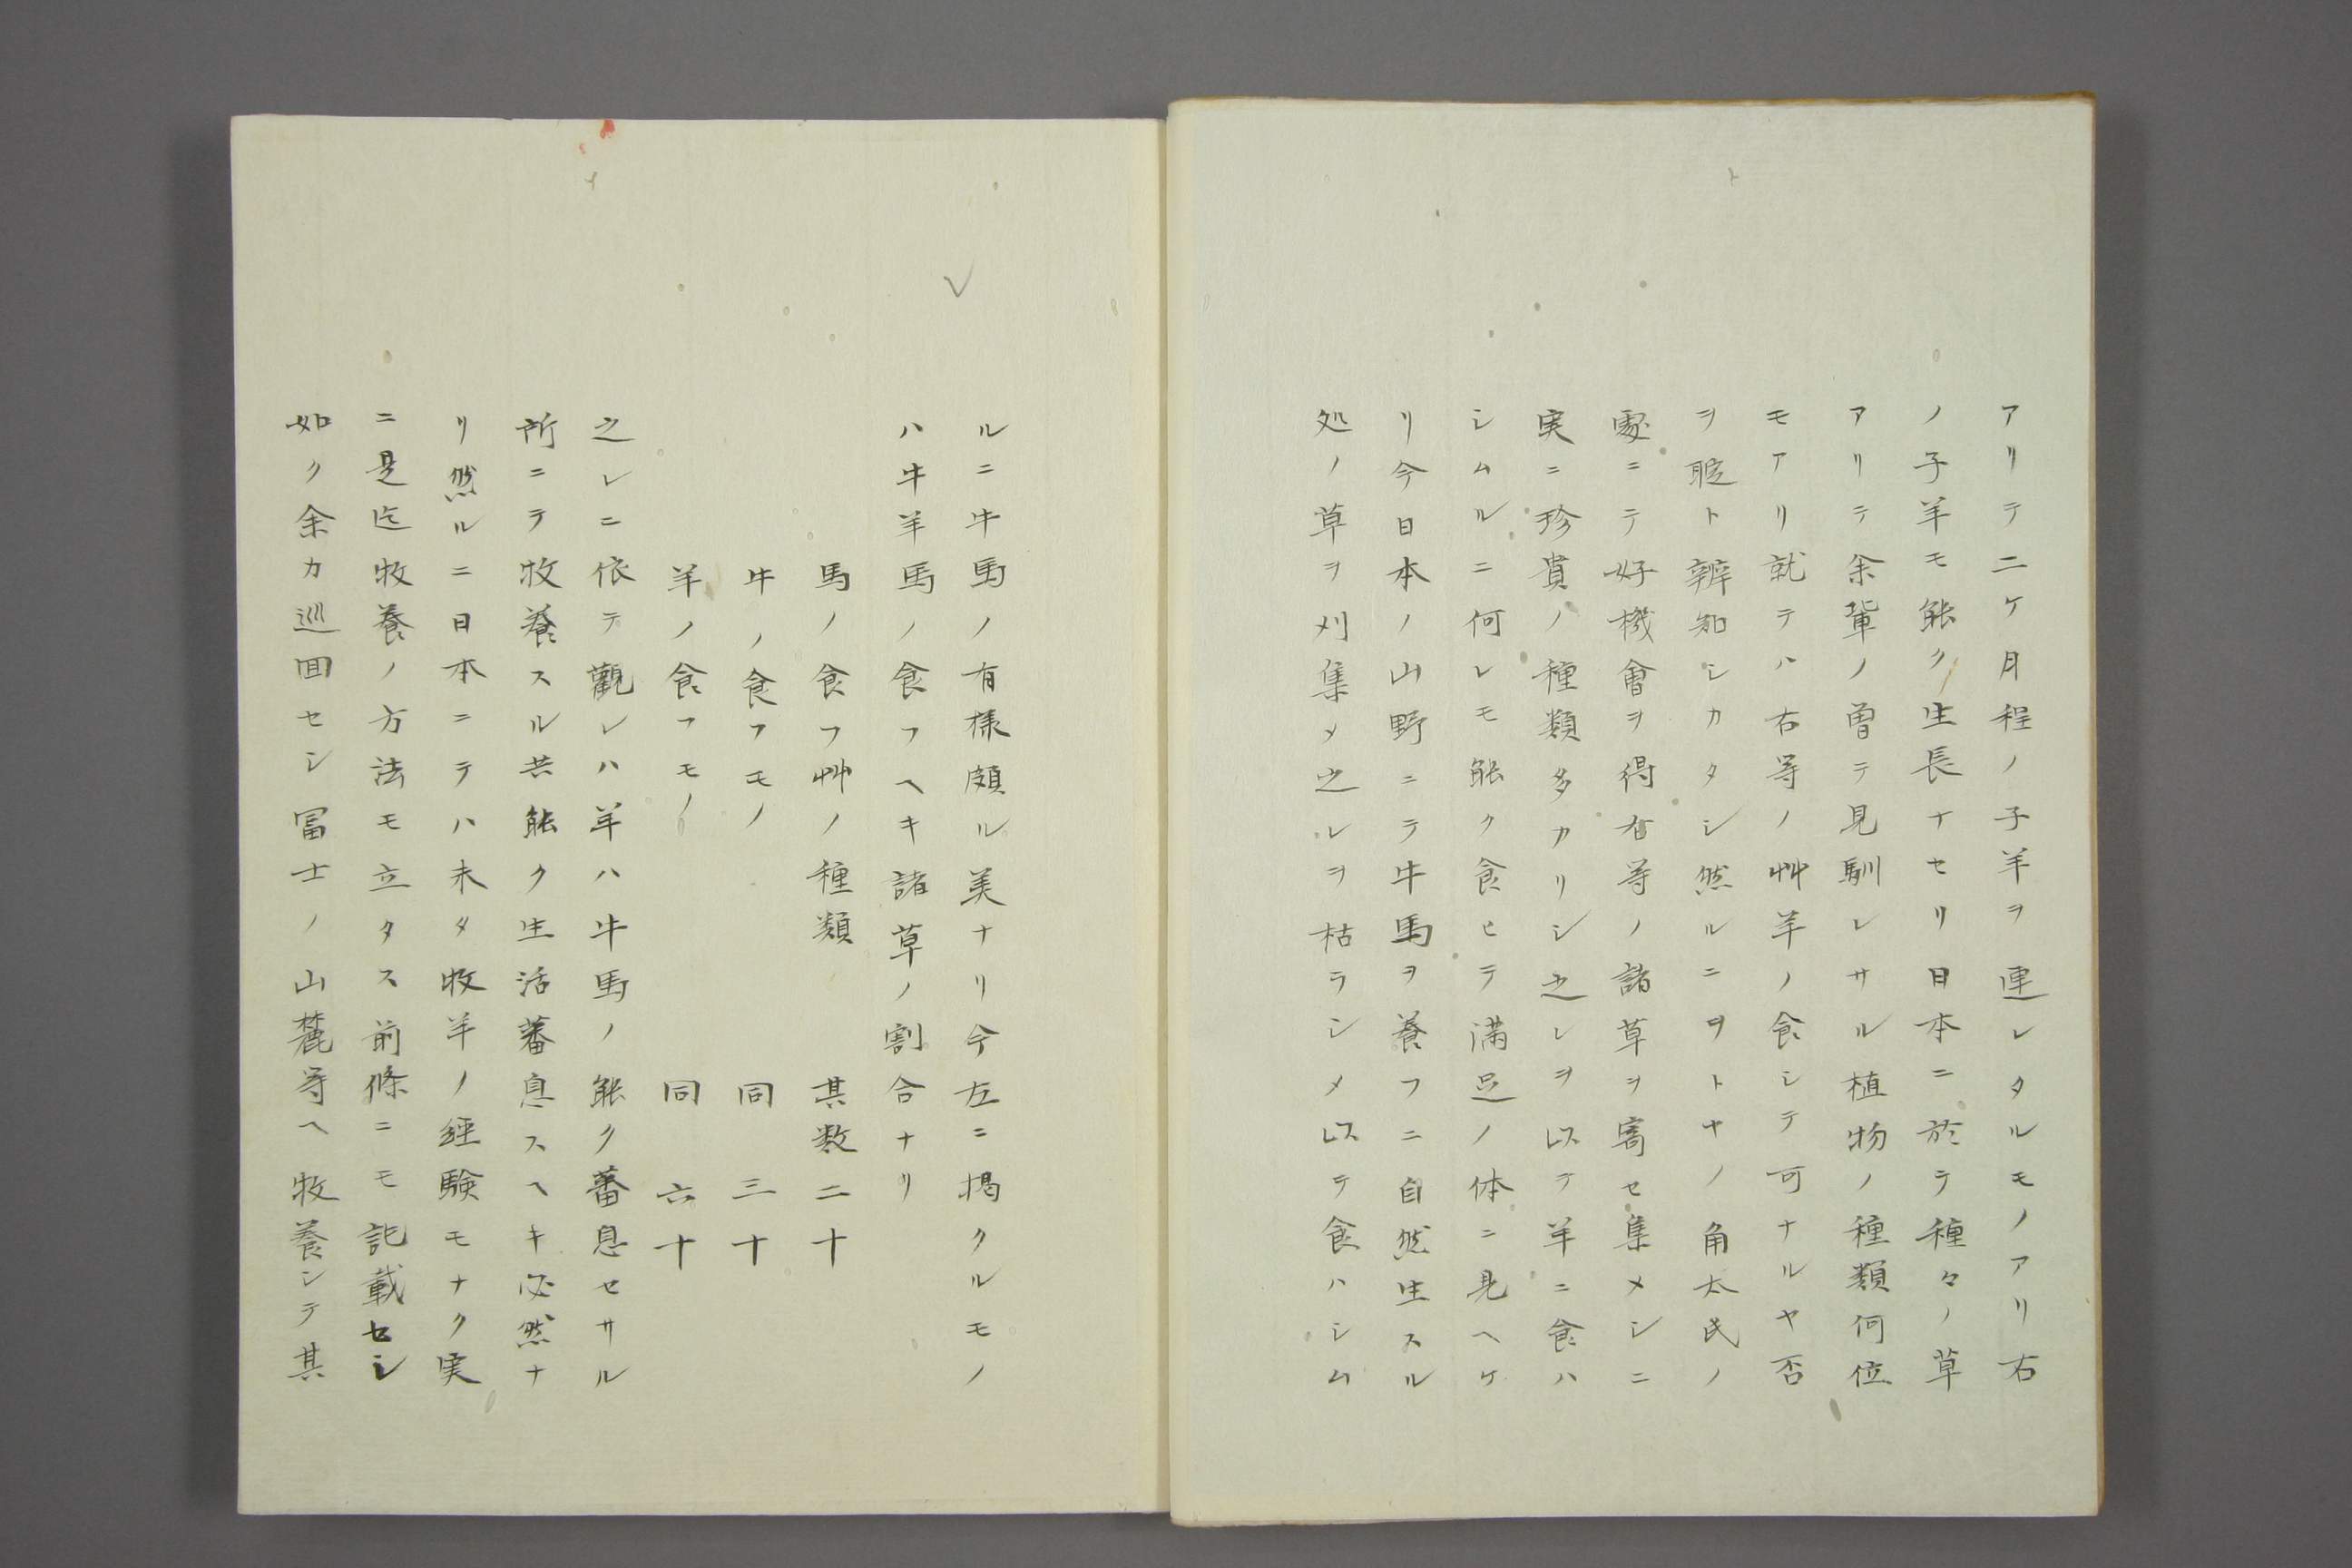 アリテ二ケ月程ノ子羊ヲ連レタルモノアリ右
ノ子羊モ能ク生長ナセリ日本ニ於テ種々ノ草
アリテ余輩ノ曽テ見馴レサル植物ノ種類何位
モアリ就テハ右等ノ艸羊ノ食シテ可ナルヤ否
ヲ聢ト辨知シカタシ然ルニヲトヤノ角太氏ノ
處ニテ好機會ヲ得右等ノ諸草ヲ寄セ集メシニ
実ニ珍貴ノ種類多カリシ之レヲ以テ羊ニ食ハ
シムルニ何レモ能ク食ヒテ満足ノ体ニ見ヘケ
リ今日本ノ山野ニテ牛馬ヲ養フニ自然生スル
処ノ草ヲ刈集メ之レヲ枯ラシメ以テ食ハシム
ルニ牛馬ノ有様頗ル美ナリ今左ニ掲クルモノ
ハ牛羊馬ノ食フヘキ諸草ノ割合ナリ
馬ノ食フ艸ノ種類 其数二十
牛ノ食フモノ 同 三十
羊ノ食フモノ 同 六十
之レニ依テ觀レハ羊ハ牛馬ノ能ク蕃息セサル
所ニテ牧養スル共能ク生活蕃息スヘキ必然ナ
リ然ルニ日本ニテハ未タ牧羊ノ経験モナク実
ニ是迄牧養ノ方法モ立タス前條ニモ記載セシ
如ク余カ巡回セシ冨士ノ山麓等ヘ牧養シテ其